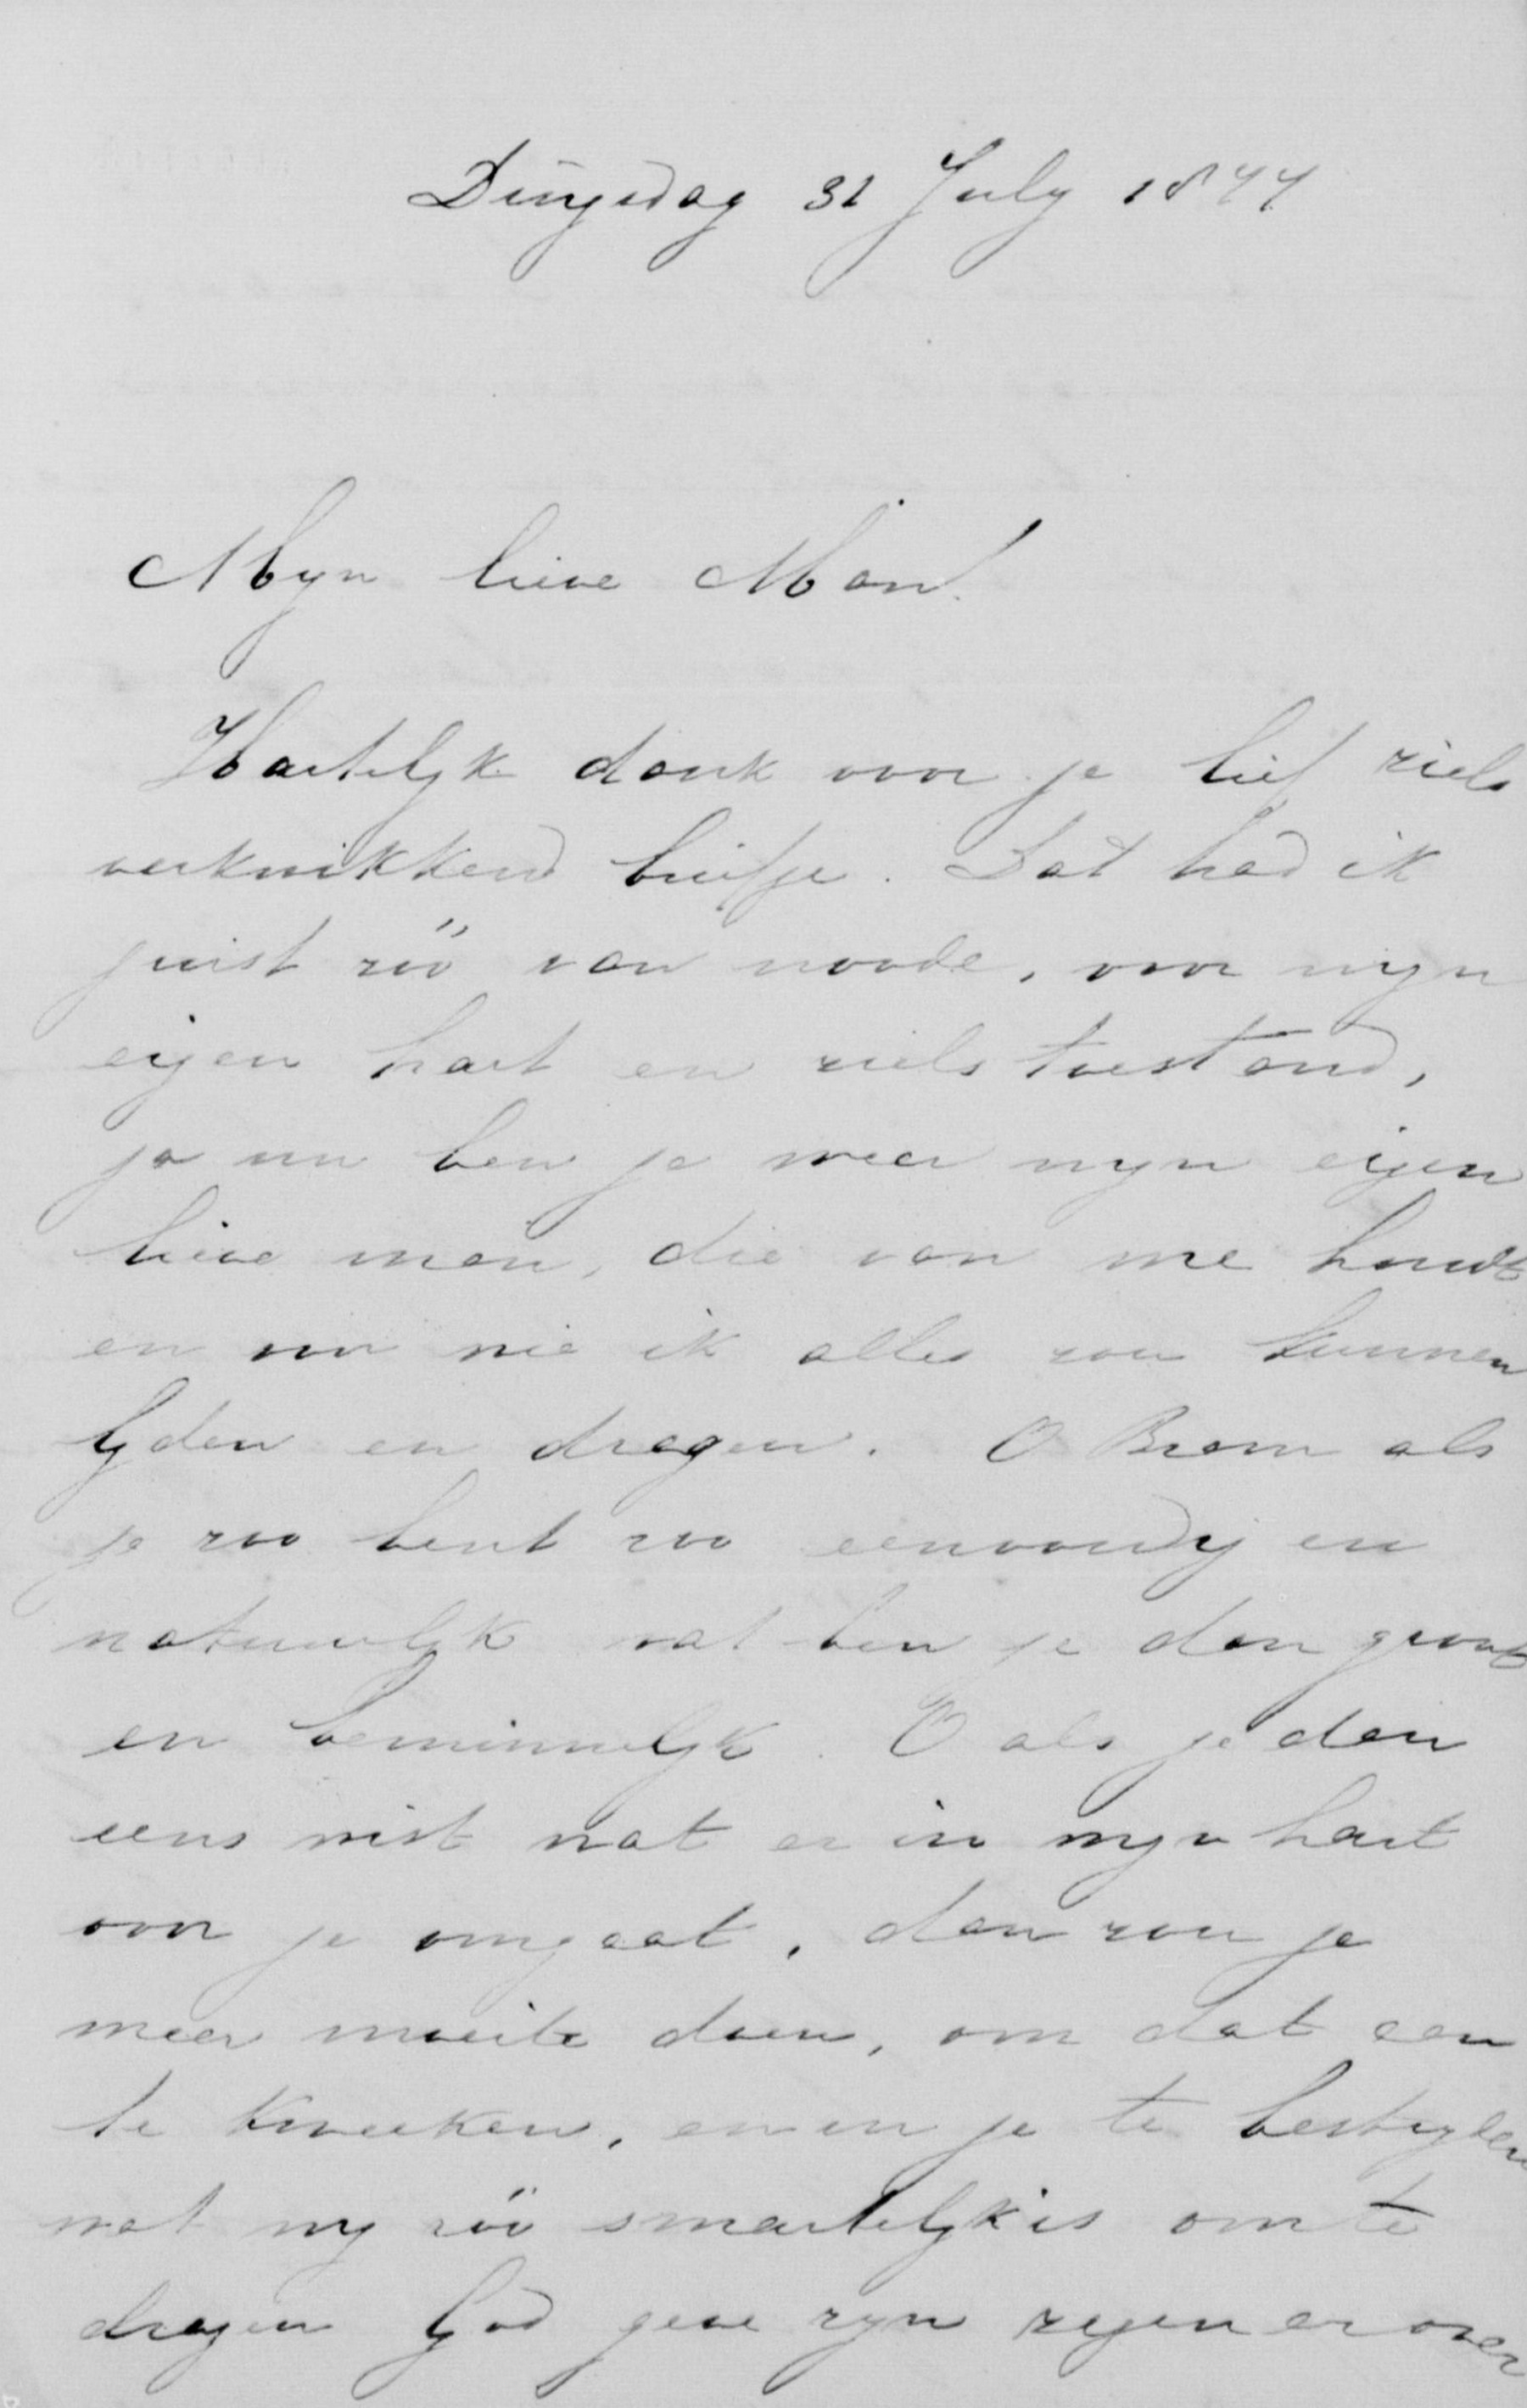 Dingsdag 31 July 1877
Myn lieve Man!
Hartelyk dank voor je lief ziels
verkwikkend briefje. Dat had ik
juist zóó van noode, voor myn
eigen hart en ziels toestand,
ja nu ben je weer myn eigen
lieve man, die van me houdt
en voor wie ik alles zou kunnen
lyden en dragen. O Bram als
je zoo bent zoo eenvoudig en
natuurlyk wat ben je dan groot
en beminnelyk. O als je dan
eens wist wat er in myn hart
voor je omgaat, dan zou je
meer moeite doen, om dat aan
te kweeken, en in je te bestryden
wat my zóó smartelyk is om te
dragen God geve zyn zegen er over